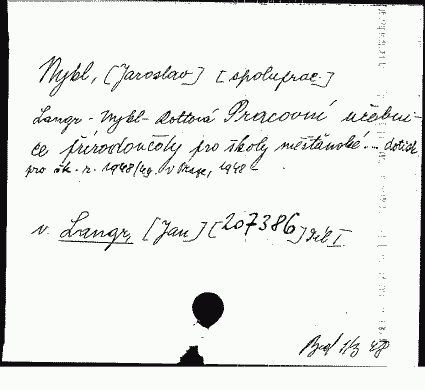 Nykl, [Jaroslav] [spoluprac.]
Langr - Nykl - Rottová Pracovní učebni-
ce přírodovědy pro školy měšťanské...
pro šk. r. 1948/49. V Praze, 1948 -
v. Langr, [Jan] [207386] I